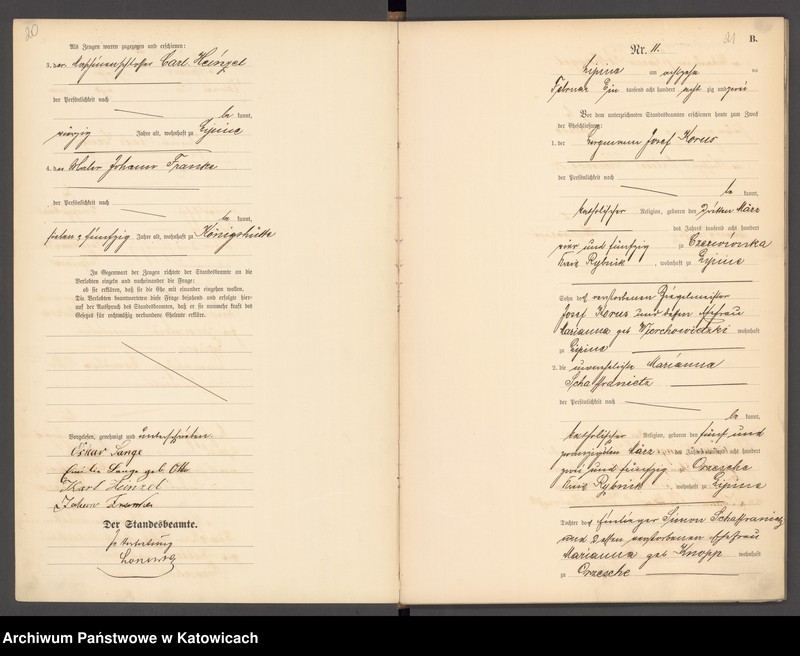 20
Als Zeugen waren zugezogen und erschienen:
3. der Maschinenschlosser Carl Heinzel
der Persönlichkeit nach
be kannt,
vierzig Jahre alt, wohnhaft zu Lipine
4. der Maler Johann Franke
der Persönlichkeit nach
be kannt,
sieben u. fünfzig Jahre alt, wohnhaft zu Königshütte
In Gegenwart der Zeugen richtete der Standesbeamte an die
Verlobten einzeln und nacheinander die Frage:
ob sie erklären, daß sie die Ehe mit einander eingehen wollen.
Die Verlobten beantworteten diese Frage bejahend und erfolgte hier-
auf der Ausspruch des Standesbeamten, daß er sie nunmehr kraft des
Gesetzes für rechtmäßig verbundene Eheleute erkläre.
Vorgelesen, genehmigt und unterschrieben.
Oskar Lange
Emilie Lange geb. Otto
Karl Heinzel
Johann Franke
Der Standesbeamte.
In Vertretung
21
B.
Nr. 11.
Lipine am achtzehn ten
Februar Ein tausend acht hundert acht zig und zwei
Vor dem unterzeichneten Standesbeamten erschienen heute zum Zweck
der Eheschließung:
1. der Bergmann Josef Korus
der Persönlichkeit nach
be kannt,
katholischer Religion, geboren den dritten März
des Jahres tausend acht hundert
vier und fünfzig zu Czerwionka
Kreis Rybnik, wohnhaft zu Lipine
Sohn des verstorbenen Ziegelmeister
Josef Korus und dessen Ehefrau
Marianna geb. wohnhaft
zu Lipine
2. die unverehelichte Marianna
Schaffranietz
der Persönlichkeit nach
be kannt,
katholischer Religion, geboren den fünf und
zwanzigsten März des Jahres tausend acht hundert
zwei und fünfzig zu Orzesche
Kreis Rybnik, wohnhaft zu Lipine
Tochter des Einlieger Simon Schaffranietz
und dessen verstorbenen Ehefrau
Marianna geb. Knopp wohnhaft
zu Orzesche
Archiwum Państwowe w Katowicach